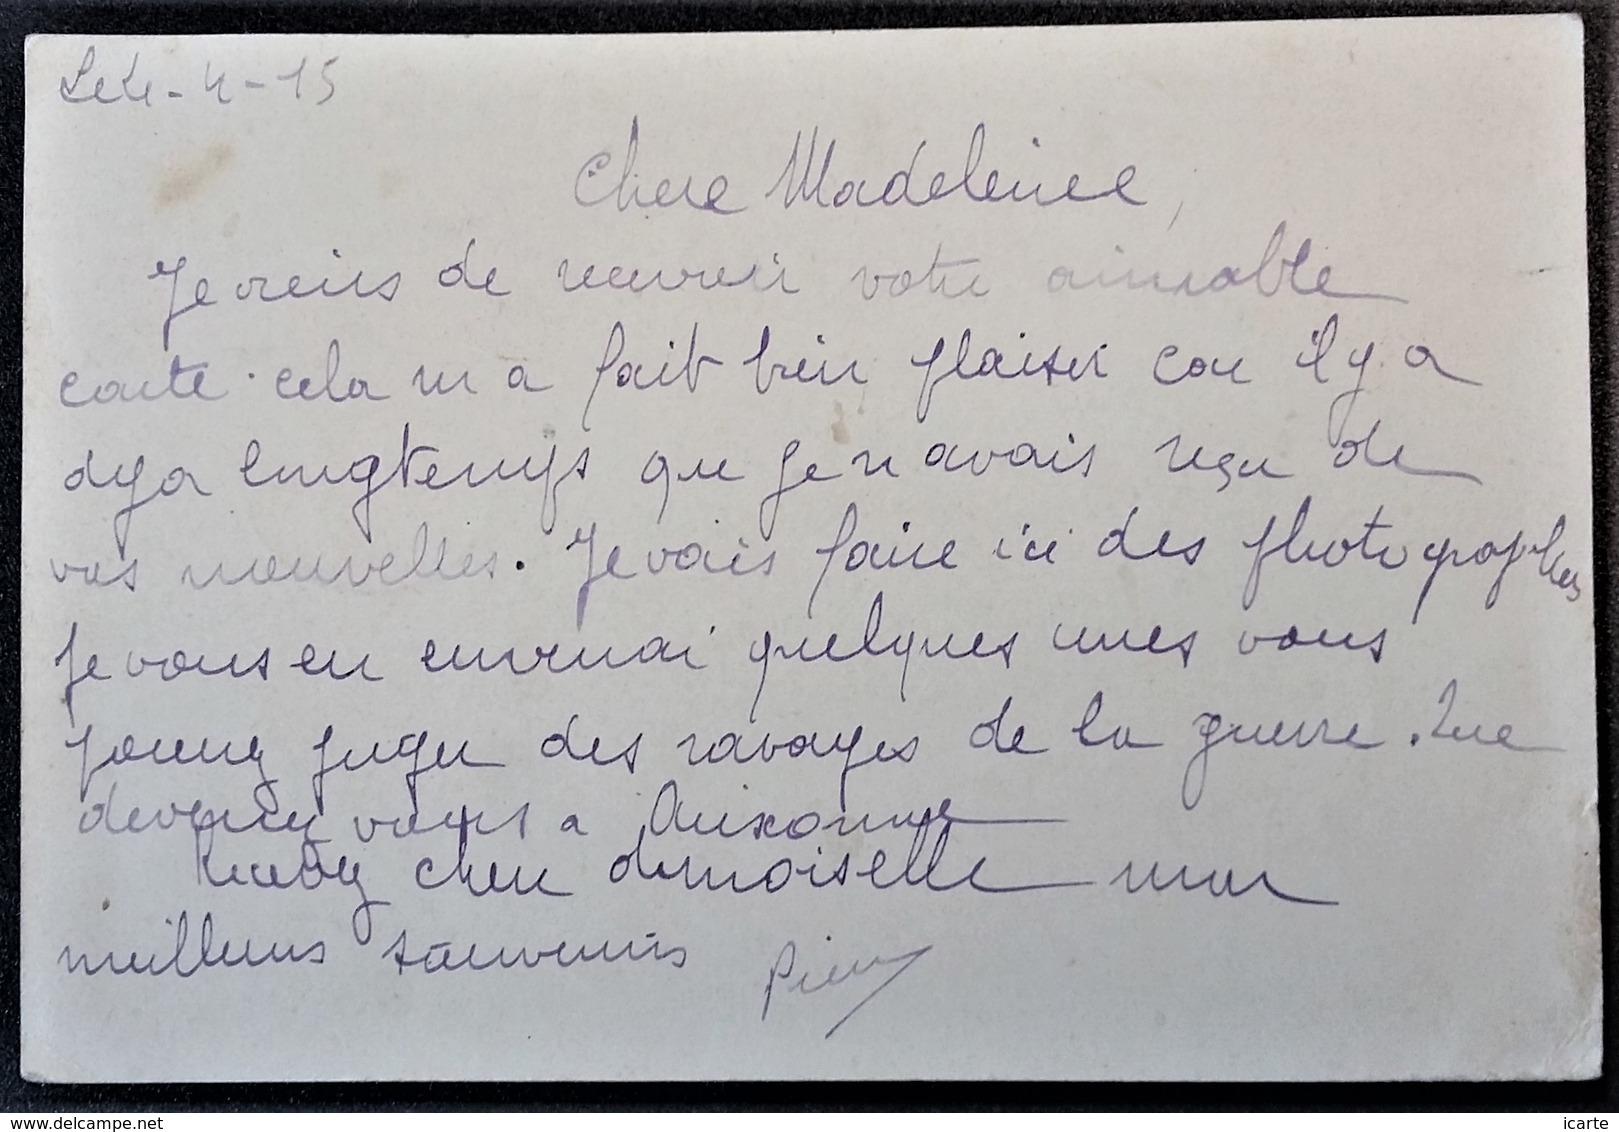 Le 4-4-15
Chere Madeleine,
Je viens de recevoir votre aimable
carte. cela m a fait bien plaisir car il y a
dya longtemps que je n avais reçu de
vos nouvelles. Je vais faire ici des photographies
Je vous en enverrai quelques unes vous
pourrez juger des ravages de la guerre. Que
devenez vous a Auxonne
Recevez chere demoiselle mes
meilleurs souvenirs Pierre
icarte
www.delcampe.net